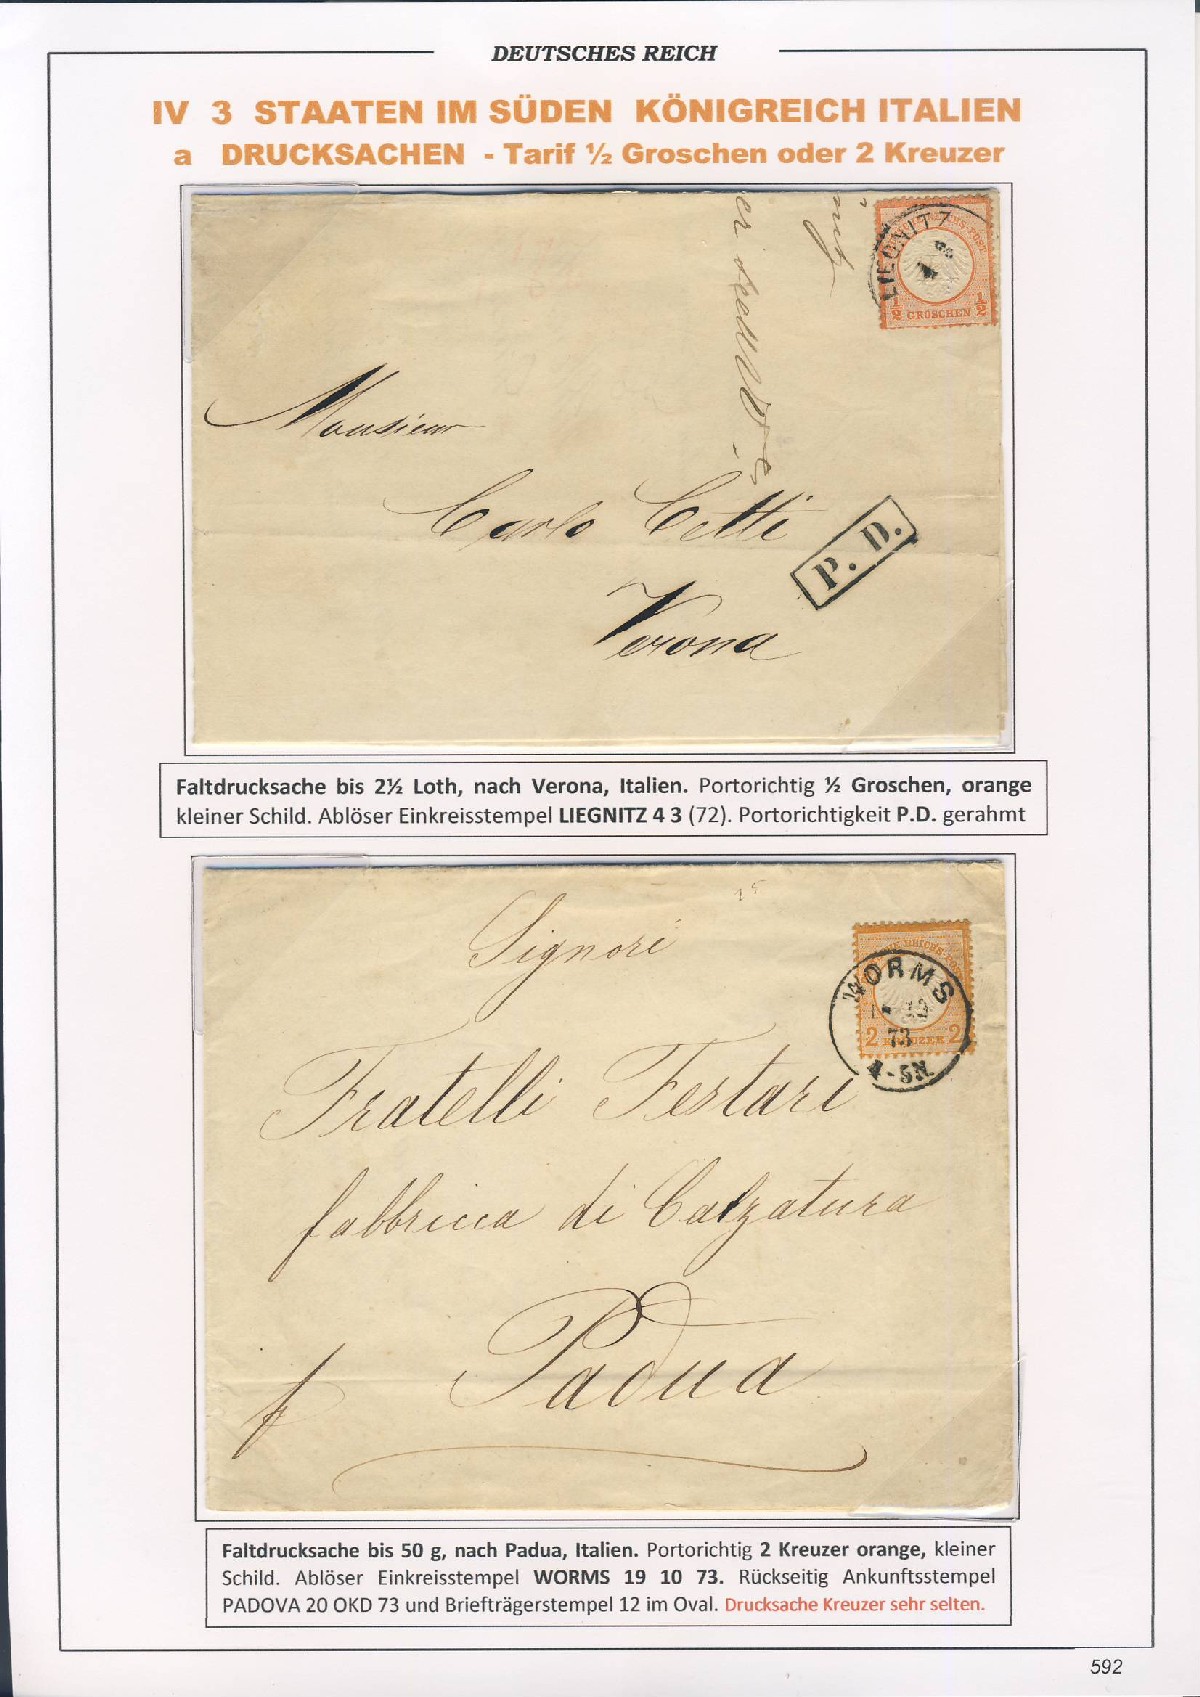 DEUTSCHES REICH
IV 3 STAATEN IM SÜDEN KÖNIGREICH ITALIEN
a DRUCKSACHEN - Tarif ½ Groschen oder 2 Kreuzer
LIEGNITZ
4
½ GROSCHEN ½
Monsieur
Carlo Cetti
P. D.
Verona
Faltdrucksache bis 2½ Loth, nach Verona, Italien. Portorichtig ½ Groschen, orange
kleiner Schild. Ablöser Einkreisstempel LIEGNITZ 4 3 (72). Portorichtigkeit P.D. gerahmt
Signori
WORMS
73
2 KREUZER 2
4-5N.
Fratelli Festari
fabbrica di Calzatura
Padua
Faltdrucksache bis 50 g, nach Padua, Italien. Portorichtig 2 Kreuzer orange, kleiner
Schild. Ablöser Einkreisstempel WORMS 19 10 73. Rückseitig Ankunftsstempel
PADOVA 20 OKD 73 und Briefträgerstempel 12 im Oval. Drucksache Kreuzer sehr selten.
592